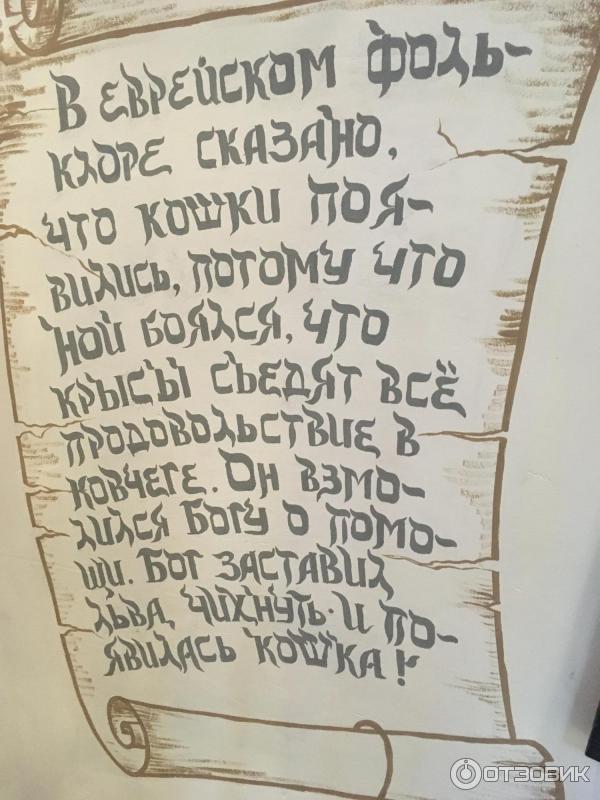 В еврейском фоль-
клоре сказано,
что кошки поя-
вились, потому что
Ной боялся, что
крысы съедят всё
продовольствие в
ковчеге. Он взмо-
лился Богу о помо-
щи. Бог заставил
льва чихнуть. И по-
явилась кошка!
ОТЗОВИК